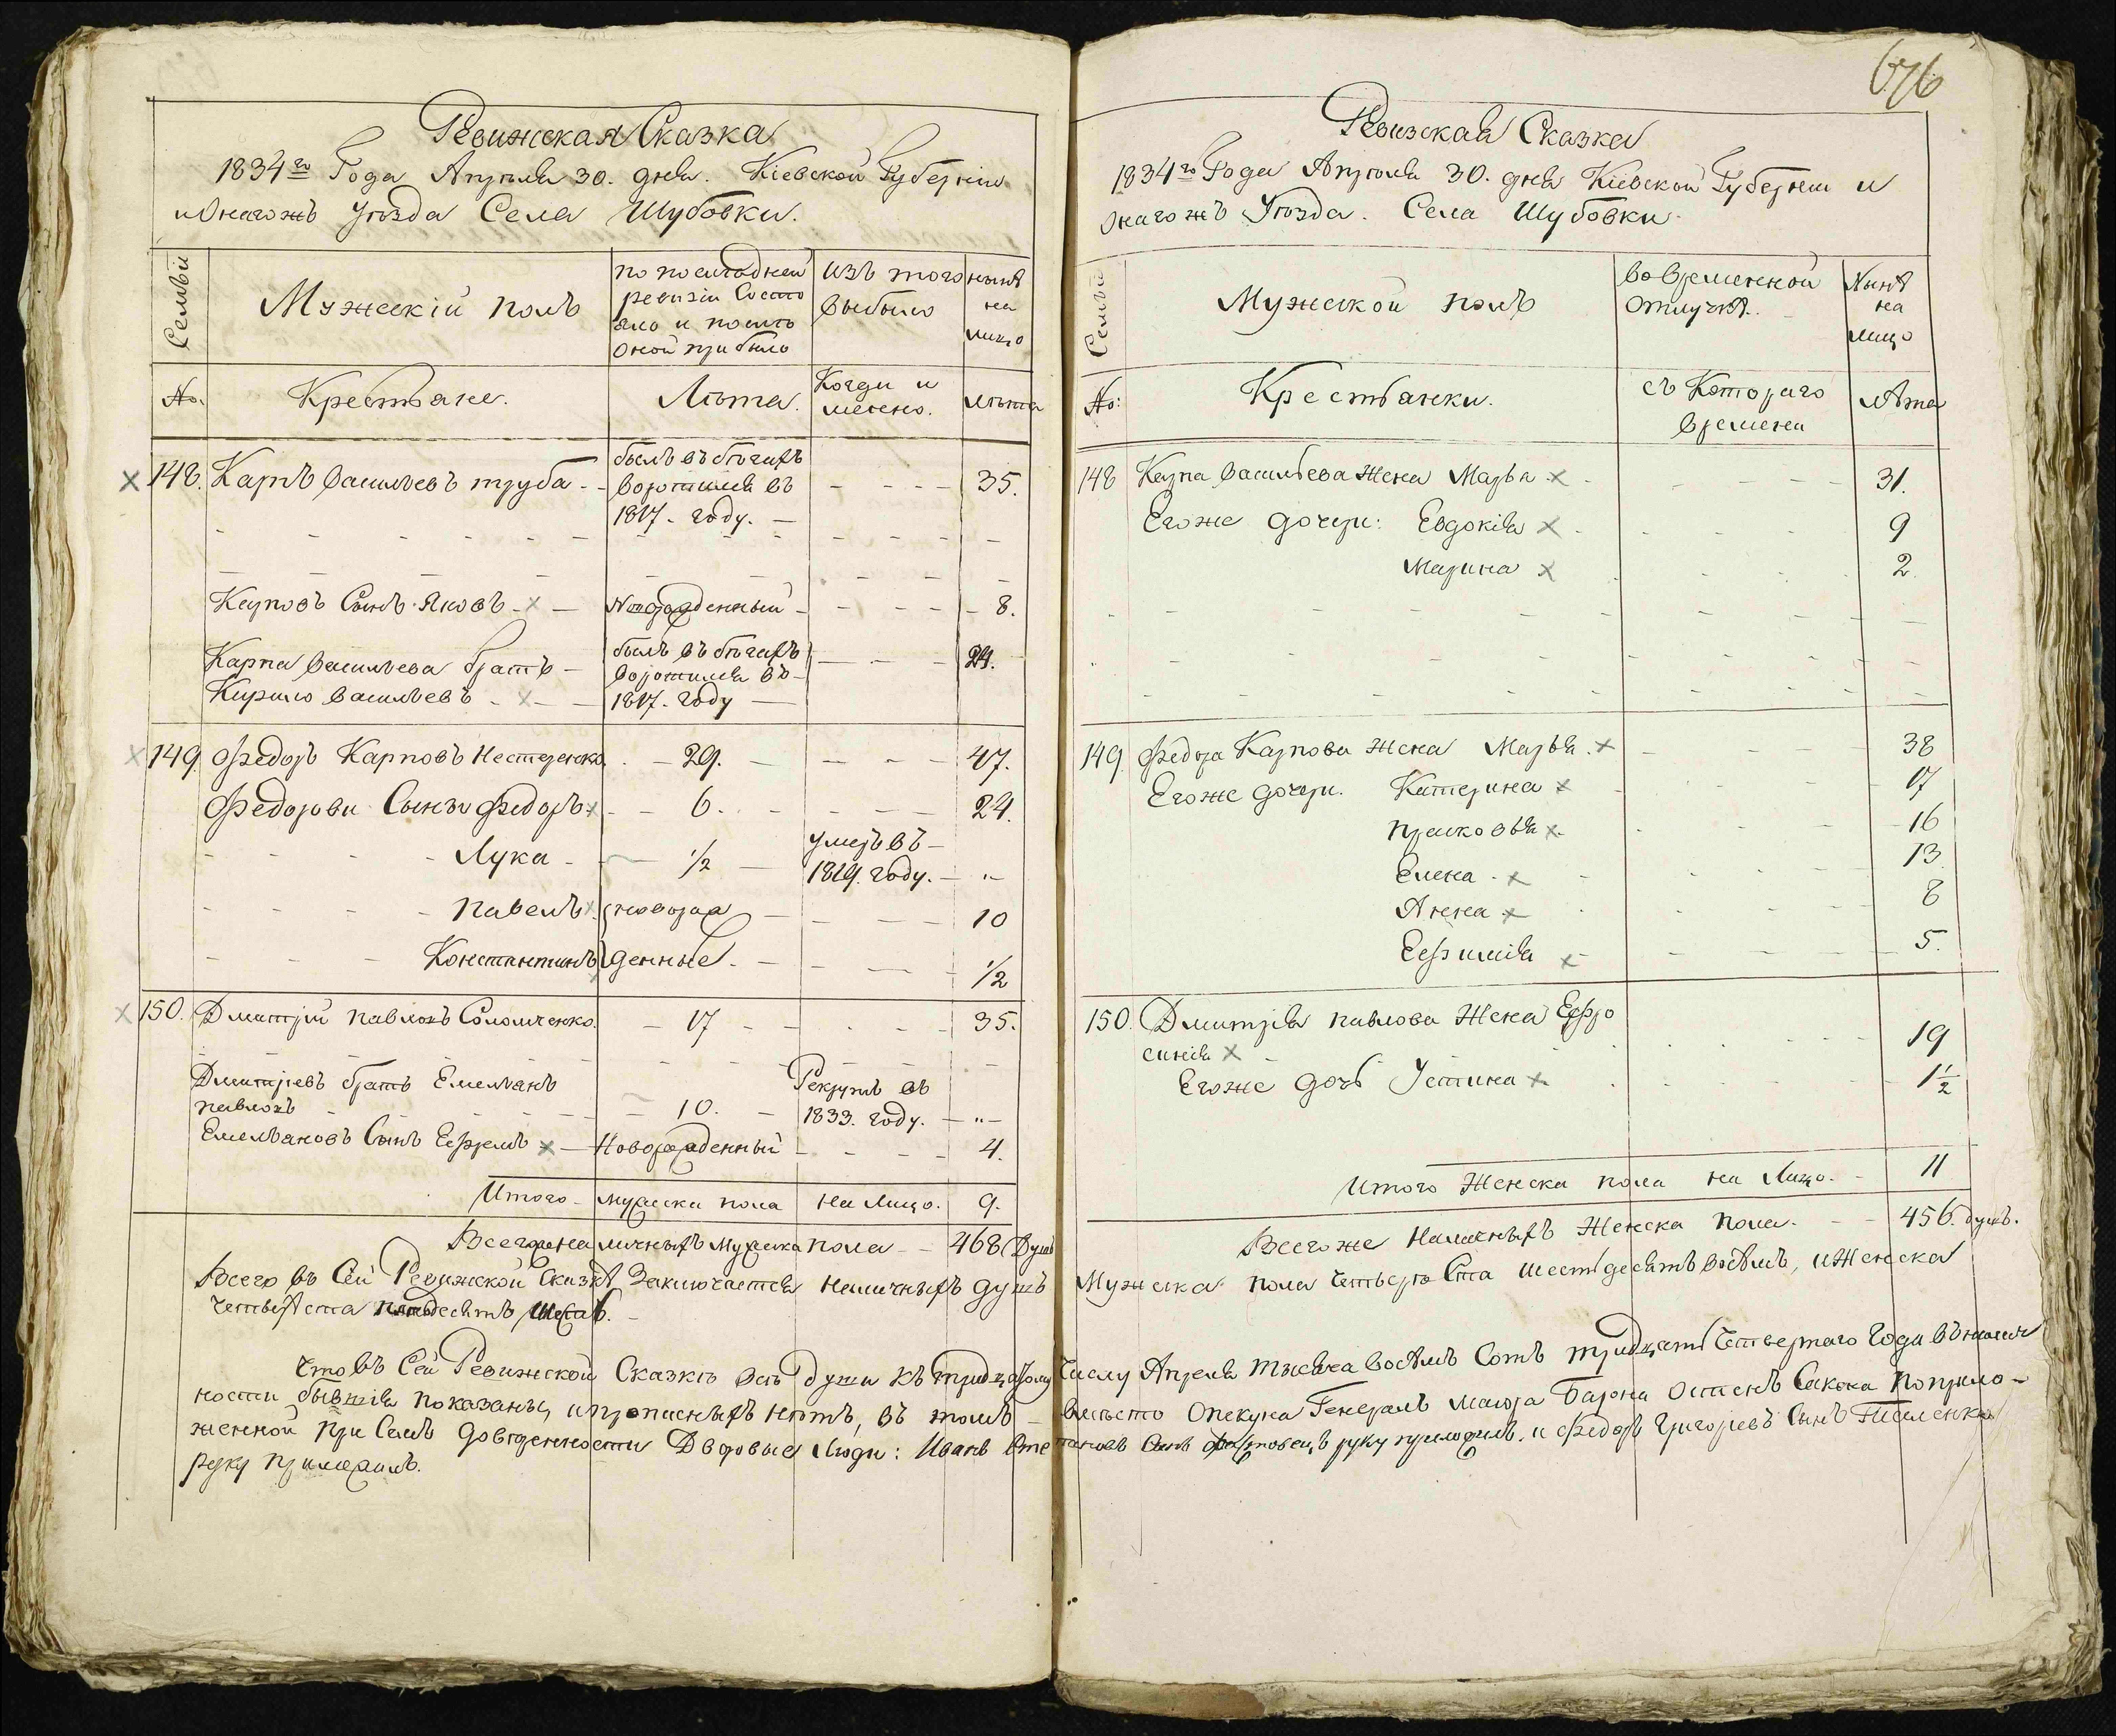 Ревижская Сказка
1834го Года Апреля 30. дня. Кіевской Губерніи
и Онагожъ Уѣзда Села Шубовки.
Семьи
Мужескій полъ
по последней
ревизіи Состо
яло и послѣ
оной прибыло
изъ того
выбыло
нынѣ
на
лицо
№.
Крестьяне.
Лѣта.
Когда и
имянно.
лѣта
148. Карпъ Васильевъ труба
былъ въ бѣгахъ
воротился въ
1817. году.
35.
Карповъ Сынъ Яковъ
Новорожденный
8.
Карпа Васильева братъ
Кирило Васильевъ
былъ въ бѣгахъ
воротился въ
1817. году
24.
149. Федоръ Карповъ Нестеренко 29. 47.
Федоровы Сынъи Федоръ 6. 24.
Лука 1/2
умеръ въ
1819. году.
Павелъ новорож 10
Константинъ денные 1/2
150. Дмитрій павловъ Соломченко. 17 35.
Дмитріевъ братъ Емельянъ
павловъ 10.
Рекрутъ въ
1833. году.
Емельяновъ Сынъ Ефремъ Новорожденный 4.
Итого мужеска пола на Лицо. 9.
Всегоже наличныхъ мужеска пола 468 Душъ
676
Ревизская Сказка
1834го Года Апреля 30. дня Кіевской Губерніи и
Онагожъ Уѣзда. Села Шубовки
Семьи
Мужеской полъ
во временной
Отлучкѣ.
Нынѣ
на
лицо
№:
Крестьянки.
съ Котораго
времени
лѣта
148 Карпа Васильева Жена Марья 31.
Егоже дочери: Евдокія 9
Марина 2
149 Федора Карпова Жена Марья. 38
Егоже дочери. Катерина 17
Прасковья 16
Елена 13
Анна 8
Ефимія 5.
150. Дмитрія павлова Жена Ефро
синія 19
Егоже дочь Устина 1 1/2
Итого Женска пола на Лицо. 11
Всегоже Наличныхъ Женска пола. 456. душъ.
Всего въ Сей Ревижской Сказкѣ Заключается Наличныхъ душъ Мужеска пола Четыреста шестьдесятъ восѣмъ, и Женска
Четыреста пятьдесятъ Шесть.
Что въ Сей Ревижской Сказкѣ всѣ души къ тридцатому Числу Апреля тысяча восѣмъ Сотъ тридцать Четвертаго Года въ налич
ности бывшія показаны, и прописныхъ нѣтъ, въ томъ вместо Опекуна Генералъ Маіора Барона Остенъ Сакена По прило-
женной при Семъ довѣренности Дворовые Люди: Иванъ Сте пановъ Сынъ руку приложилъ. и Федоръ Григоріевъ Сынъ
руку приложилъ.